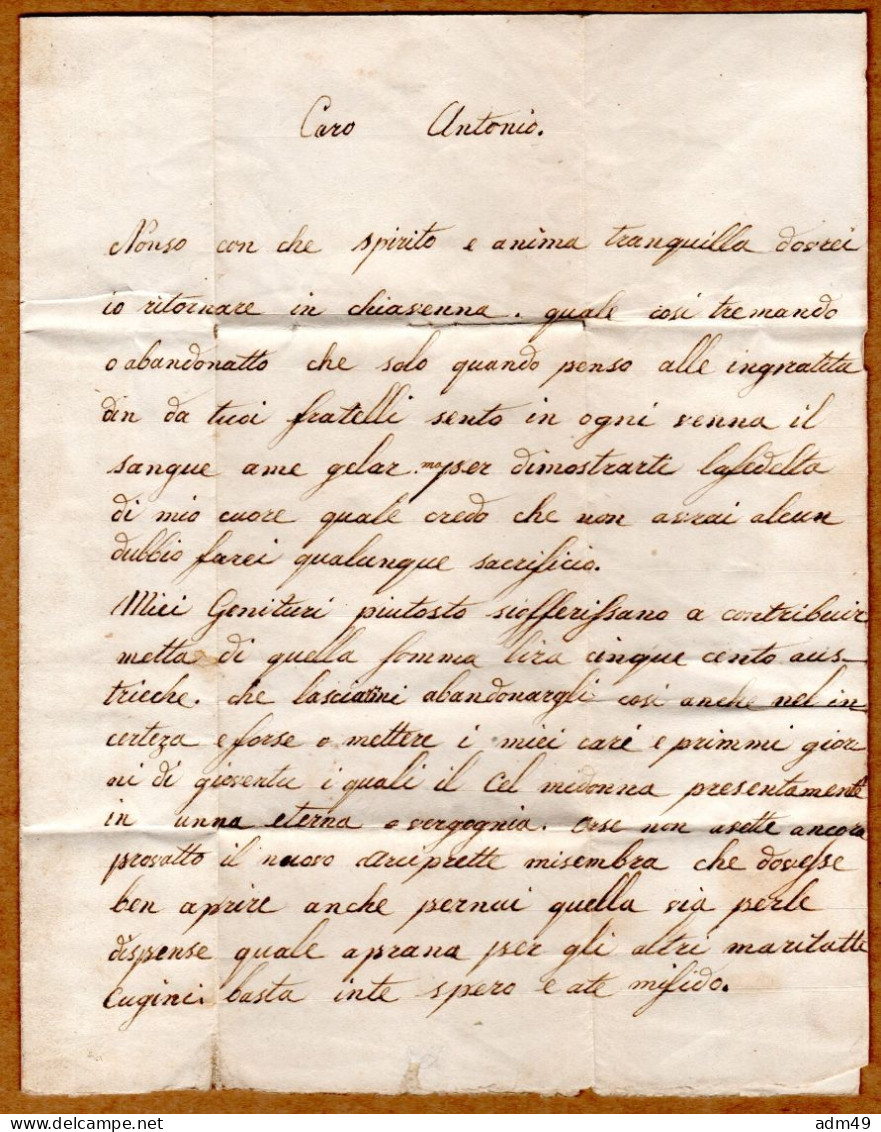 Caro Antonio.
Nonso con che spirito e anima tranquilla dovrei
io ritornare in chiavenna. quale cosi tremando
o abandonatto che solo quando penso alle ingratita
din da tuoi fratelli sento in ogni venna il
sangue ame gelar. ma per dimostrarti lafedelta
di mio cuore quale credo che non avrai alcun
dubbio farei qualunque sacrificio.
Miei Genituri piutosto siofferissano a contribuir
metta di quella somma lira cinque cento aus-
trieche. che lasciarmi abandonargli cosi anche nel in-
certeza e forse o mettere i miei cari e primmi gior
ni di gioventu i quali il Cel midonna presentamente
in unna eterna o vergognia. orse non avette ancora
provatto il nuovo arciprette misembra che dovesse
ben aprire anche pernui quella via perle
dispense quale aprana per gli altri maritatti
Cugini. basta inte spero e ate mifido.
adm49